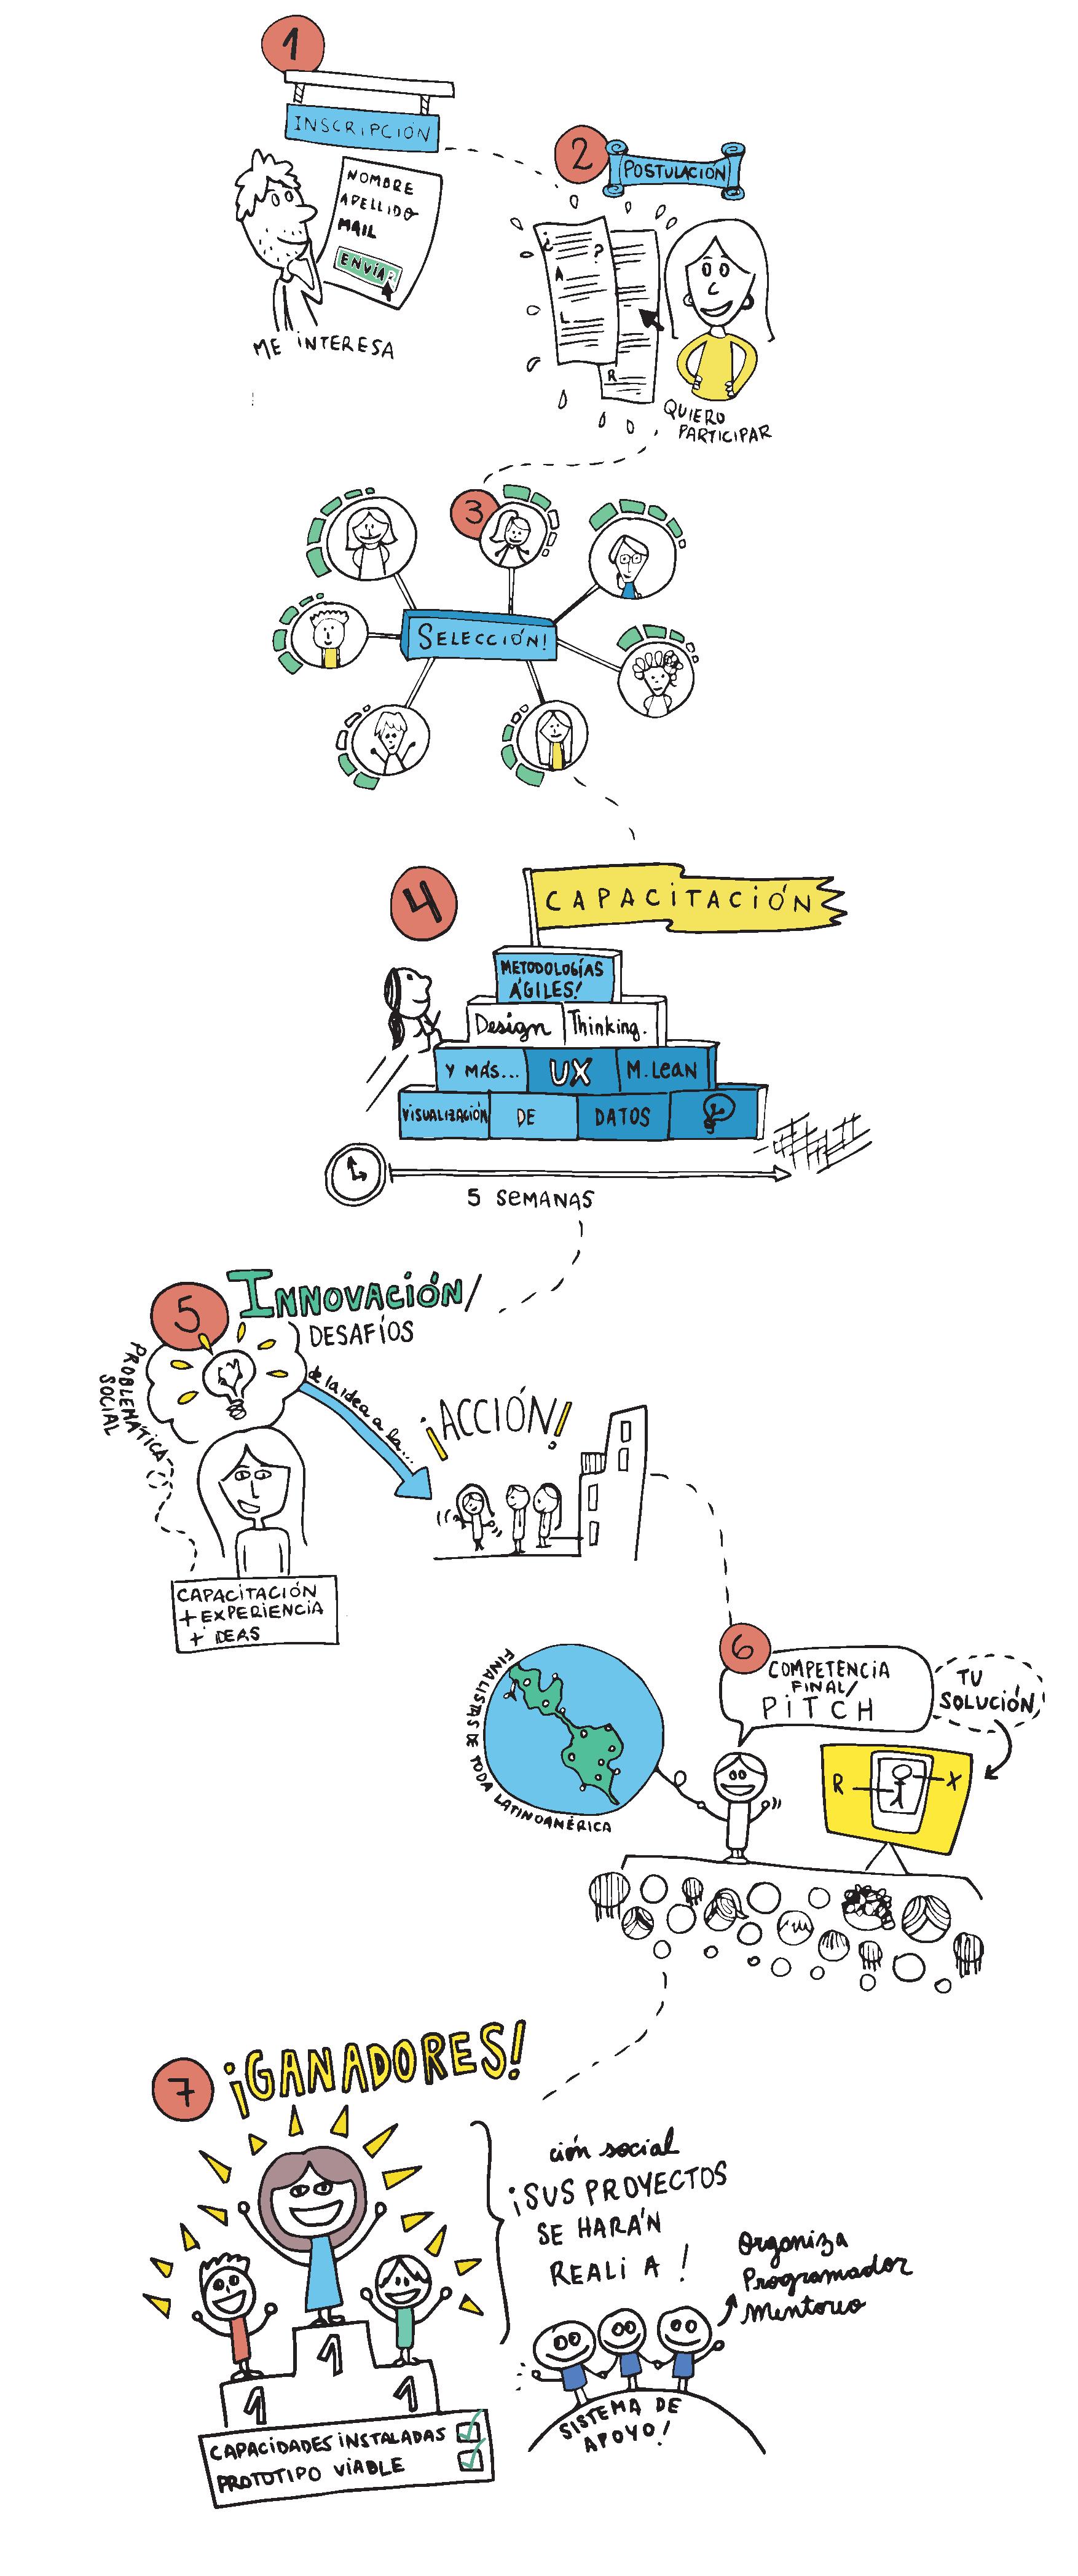 1
INSCRIPCIÓN
NOMBRE
APELLIDO
MAIL
ENVIAR
ME INTERESA
2
POSTULACIÓN
¿ ?
A
L
R
QUIERO
PARTICIPAR
3
SELECCIÓN!
4
CAPACITACIÓN
METODOLOGÍAS
ÁGILES!
Design Thinking.
Y MÁS... UX M.LEAN
VISUALIZACIÓN DE DATOS
5 SEMANAS
5
INNOVACIÓN/
DESAFÍOS
PROBLEMÁTICA
SOCIAL
de la idea a la...
¡ACCIÓN!
CAPACITACIÓN
+ EXPERIENCIA
+ IDEAS
6
COMPETENCIA
FINAL/
PITCH
TU
SOLUCIÓN
FINALISTAS DE TODA LATINOAMÉRICA
R X
7
¡GANADORES!
ción social
¡SUS PROYECTOS
SE HARÁN
REALI A !
Organiza
Programador
Mentoreo
1
1 1
CAPACIDADES INSTALADAS
PROTOTIPO VIABLE
SISTEMA DE
APOYO!